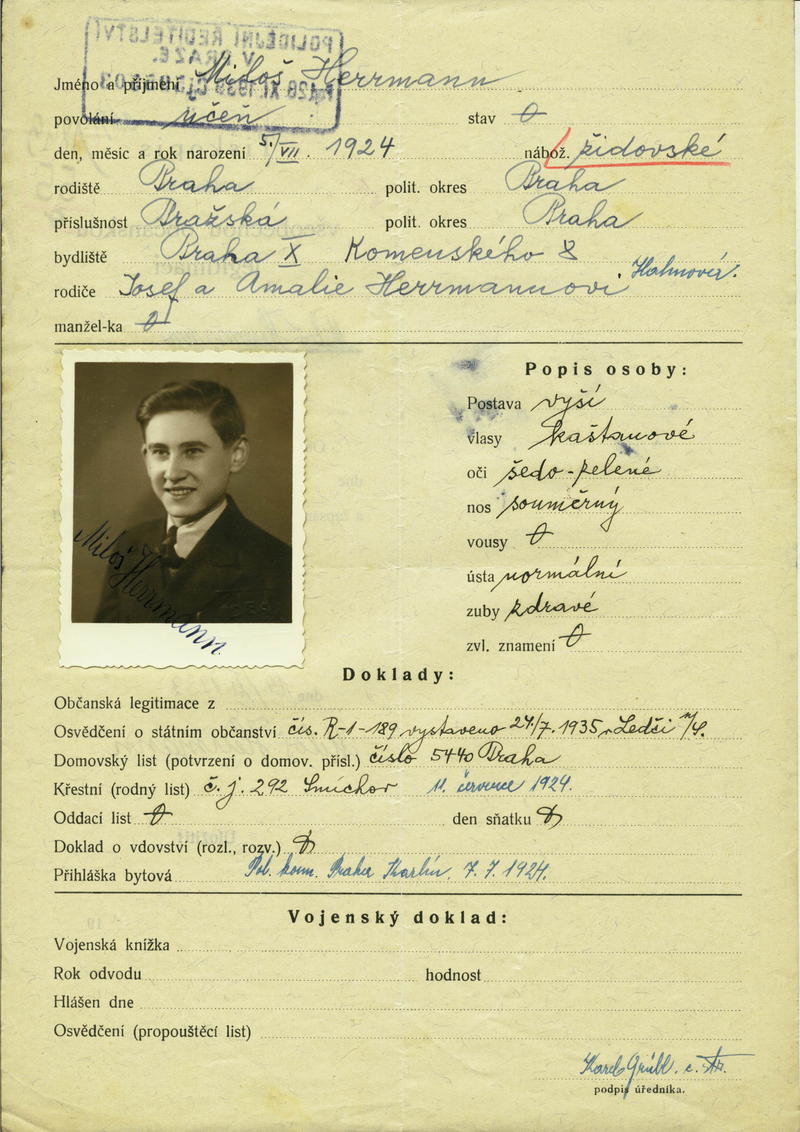 POLICEJNÍ ŘEDITELSTVÍ
V PRAZE.
Jméno a příjmení Miloš Herrmann
povolání učeň stav 0
den, měsíc a rok narození 5./VII. 1924 nábož. židovské
rodiště Praha polit. okres Praha
příslušnost Pražská polit. okres Praha
bydliště Praha X Komenského 8
rodiče Josef a Amalie Herrmannovi Hahnová.
manžel-ka 0
Popis osoby:
Postava vyší
vlasy kaštanové
oči šedo-zelené
nos souměrný
vousy 0
ústa normální
zuby zdravé
zvl. znamení 0
Miloš Herrmann
Doklady:
Občanská legitimace z
Osvědčení o státním občanství čís. R-1-189 vystaveno 24/7. 1935 v Ledči n/S.
Domovský list (potvrzení o domov. přísl.) číslo 5440 Praha
Křestní (rodný list) č. j. 292 Smíchov 11. července 1924.
Oddací list 0 den sňatku 0
Doklad o vdovství (rozl., rozv.) 0
Přihláška bytová Pol. kom. Praha Karlín. 7. 7. 1924.
Vojenský doklad:
Vojenská knížka
Rok odvodu hodnost
Hlášen dne
Osvědčení (propouštěcí list)
Karel
podpis úředníka.